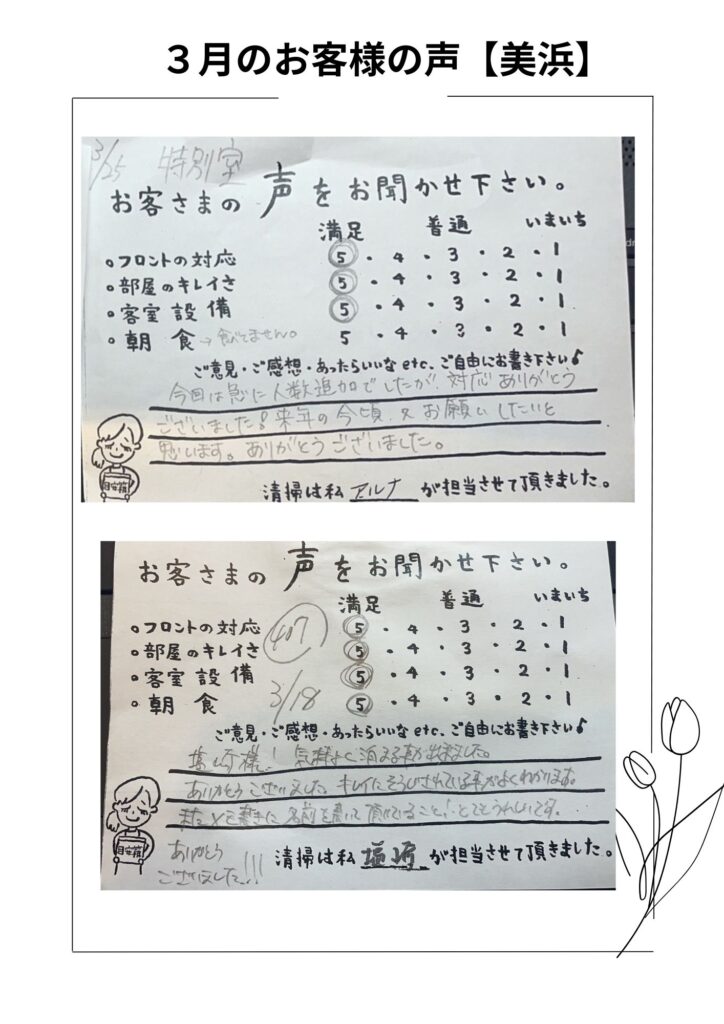 ３月のお客様の声【美浜】
3/25 特別室
お客さまの 声 をお聞かせ下さい。
満足 普通 いまいち
○フロントの対応 5 ・ 4 ・ 3 ・ 2 ・ 1
○部屋のキレイさ 5 ・ 4 ・ 3 ・ 2 ・ 1
○客室設備 5 ・ 4 ・ 3 ・ 2 ・ 1
○朝食 →食べてません。 5 ・ 4 ・ 3 ・ 2 ・ 1
ご意見・ご感想・あったらいいな etc. ご自由にお書き下さい♪
今回は急に人数追加でしたが、対応ありがとう
ございました! 来年の今頃、又お願いしたいと
思います。ありがとうございました。
清掃は私 アルナ が担当させて頂きました。
お客さまの 声 をお聞かせ下さい。
満足 普通 いまいち
○フロントの対応 5 ・ 4 ・ 3 ・ 2 ・ 1
407
○部屋のキレイさ 5 ・ 4 ・ 3 ・ 2 ・ 1
○客室設備 5 ・ 4 ・ 3 ・ 2 ・ 1
○朝食 3/18 5 ・ 4 ・ 3 ・ 2 ・ 1
ご意見・ご感想・あったらいいな etc. ご自由にお書き下さい♪
様! 気持よく泊える事が出来ました。
ありがとうございました。キレイにそうじされている事がよくわかります。
名前を書いて頂いてること! とてもうれしいです。
ありがとう
ございました!!!
清掃は私 塩崎 が担当させて頂きました。